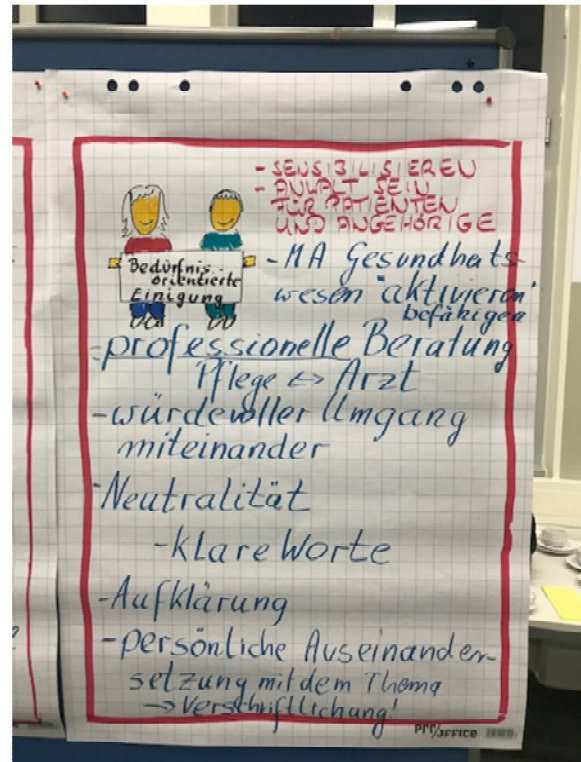 - SENSIBILISIEREN
- ANWALT SEIN
FÜR PATIENTEN
UND ANGEHÖRIGE
Bedürfnis-
orientierte
Einigung
- MA Gesundheits-
wesen "aktivieren"
befähigen
- professionelle Beratung
Pflege <-> Arzt
- würdevoller Umgang
miteinander
- Neutralität
- klare Worte
- Aufklärung
- persönliche Auseinander-
setzung mit dem Thema
-> Verschriftlichung!
?